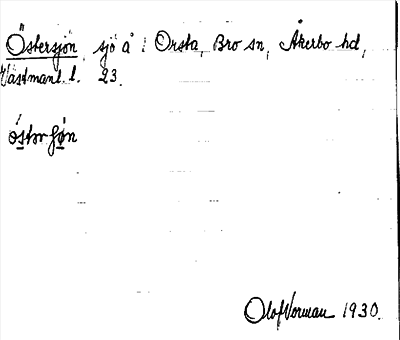 Östersjön, sjö å Orsta, Bro sn, Åkerbo hd,
Västmanl. l. 23.
östərʃøn
Olof Vorman 1930.